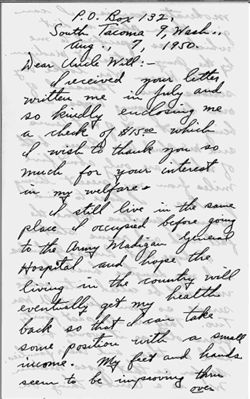 P.O. Box 132,
South Tacoma 9, Wash.,
Aug., 7, 1950.
Dear Uncle Will:-
I received your letter
written me in July and
so kindly enclosing me
a check of $15.00 which
I wish to thank you so
much for your interest
in my welfare.
I still live in the same
place I occupied before going
to the Army Madigan General
Hospital and hope the
living in the country will
eventually get my health
back so that I can take
some position with a small
income. My feet and hands
seem to be improving thru
over